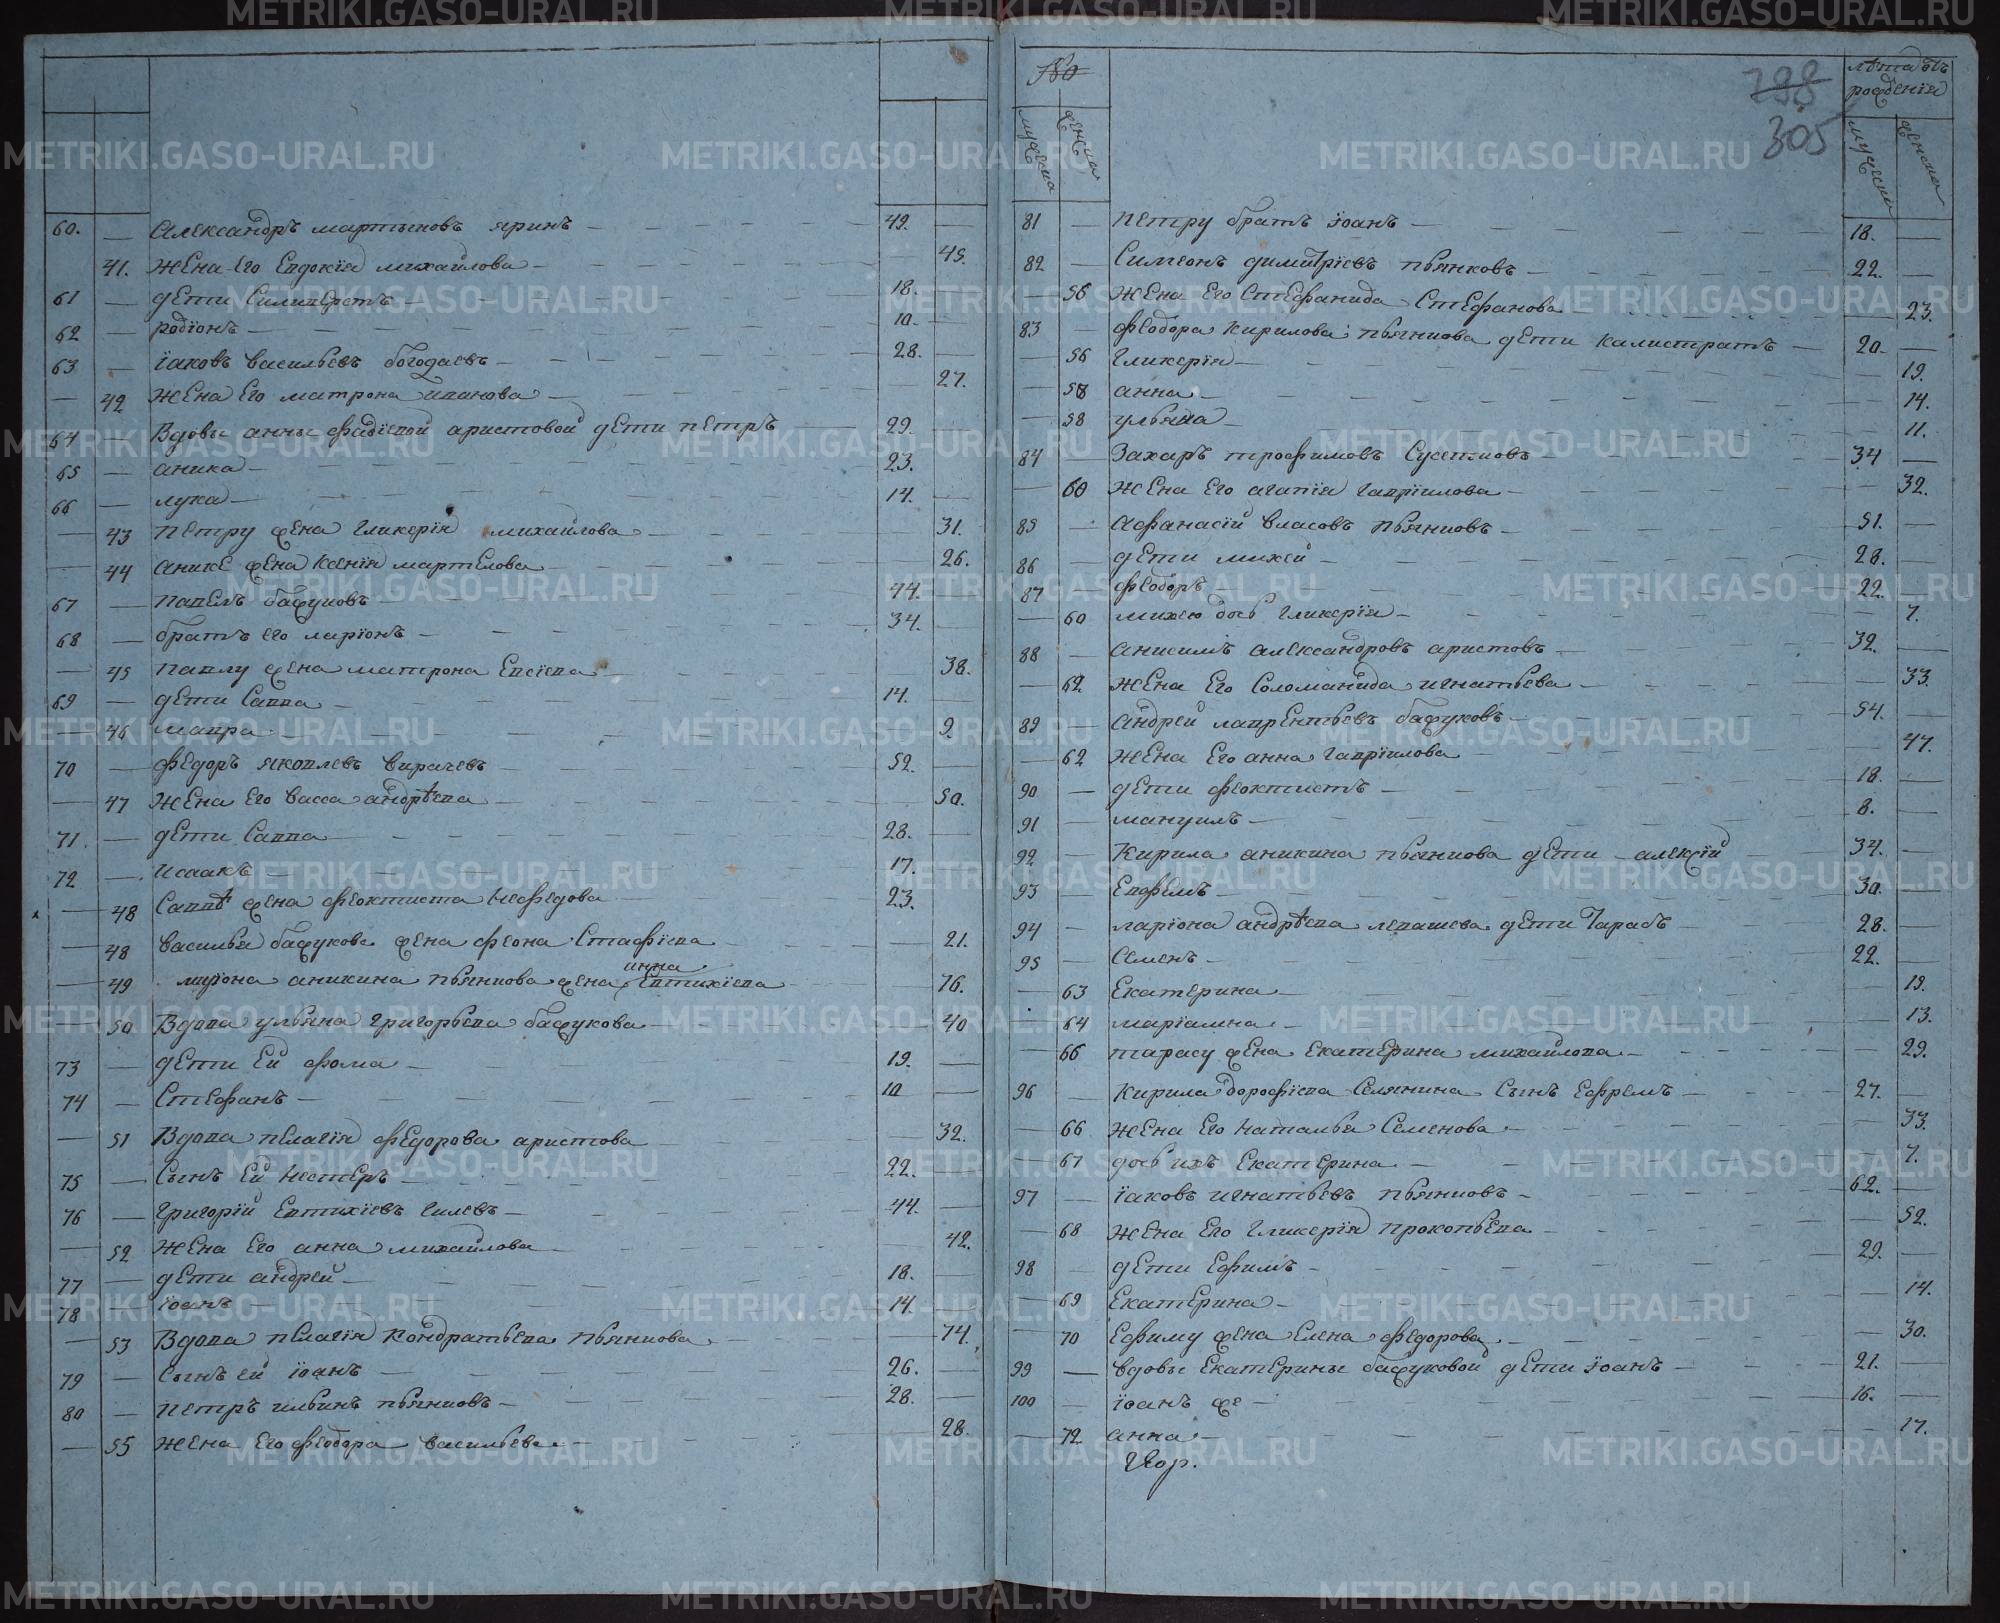 60. — Александръ мартыновъ яринъ — 49. —
— 41. жена его Евдокія михайлова — 45.
61 — дети Силиверстъ — 18. —
62 — родіонъ — 10. —
63 — іаковъ васильевъ богодаевъ — 28. —
— 42 жена его матрона иванова — 27.
64 — Вдовы анны фадіевой аристовой дети петръ — 29. —
65 — аника — 23. —
66 — лука — 14. —
— 43 петру жена гликерія михайлова — 31.
— 44 анике жена Ксенія мартелова — 26.
67 — павелъ бажуковъ — 44. —
68 — братъ его ларіонъ — 34. —
— 45 павлу жена матрона Евсіева — 38.
69 — дети Савва — 14. —
— 46 мавра — 9.
70 — федоръ яковлевъ вирачевъ — 52. —
— 47 жена его васса андрѣева — 50.
71. — дети Савва — 28. —
72 — исаакъ — 17. —
— 48 Саввѣ жена феоктиста нефедова — 23. —
— 48 васильи бажукова жена феона Стафіева — 21.
анна
— 49 мирона аникина пьянкова жена Евтихіева — 76.
— 50 Вдова ульяна григорьева бажукова — 40
73 — дети ей фома — 19. —
74 — Стефанъ — 10 —
— 51 Вдова пелагія федорова аристова — 32.
75 — Сынъ ей нестеръ — 22. —
76 — григорій Евтихіевъ гилевъ — 44. —
— 52 жена его анна михайлова — 42.
77 — дети андрей — 18. —
78 — іоанъ — 14. —
— 53 Вдова пелагія кондратьева пьянкова — 74.
79 — Сынъ ей іоанъ — 26. —
80 — петръ ильинъ пьянковъ — 28. —
— 55 жена его феодора васильева — 28.
№
798
305
лѣта отъ рожденія
мужеска
женска
мужеска
женска
81 — петру братъ іоанъ — 18. —
82 — Симеонъ димитріевъ пьянковъ — 22. —
— 56 жена его Стефанида Стефанова — 23.
83 — феодора кирилова пьянкова дети калистратъ — 20. —
— 56 гликерія — 19.
— 58 анна — 14.
— 58 ульяна — 11.
84 — Захаръ трофимовъ — 34 —
— 60 жена его агапія гавріилова — 32.
85 — афанасій власовъ пьянковъ — 51. —
86 — дети михей — 28. —
87 — феодоръ — 22. —
— 60 михею дочь гликерія — 7.
88 — анисимъ александровъ аристовъ — 32. —
— 62 жена его Соломанида игнатьева — 33.
89 — андрей лаврентьевъ бажуковъ — 54. —
— 62 жена его анна гавріилова — 47.
90 — дети феоктистъ — 18. —
91 — мануилъ — 8. —
92 — кирила аникина пьянкова дети алексій — 34. —
93 — Евфемъ — 30. —
94 — ларіона андрѣева левашева дети Тарасъ — 28. —
95 — Семенъ — 22. —
— 63 Екатерина — 19.
— 64 маріамна — 13.
— 66 тарасу жена екатерина михайлова — 29.
96 — кирила дорофіева Селянина Сынъ Ефремъ — 27. —
— 66 жена его наталья Семенова — 33.
— 67 дочь ихъ екатерина — 7.
97 — іаковъ игнатьевъ пьянковъ — 62. —
— 68 жена его гликерія прокопьева — 52.
98 — дети Ефимъ — 29. —
— 69 Екатерина — 14.
— 70 Ефиму жена елена федорова — 30.
99 — вдовы екатерины бажуковой дети іоанъ — 21. —
100 — іоанъ же — 16. —
— 72 анна — 17.
METRIKI.GASO-URAL.RU